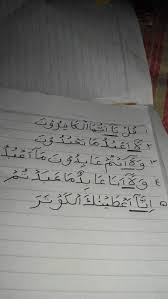 ١ قُلْ يَآ أَيُّهَا الْكَافِرُوْنَ
٢ لَآ أَعْبُدُ مَا تَعْبُدُوْنَ
٣ وَلَآ أَنْتُمْ عَابِدُوْنَ مَآ أَعْبُدُ
٤ وَلَآ أَنَا عَابِدٌ مَا عَبَدْتُمْ
٥ إِنَّآ أَعْطَيْنٰكَ الْكَوْثَرَ